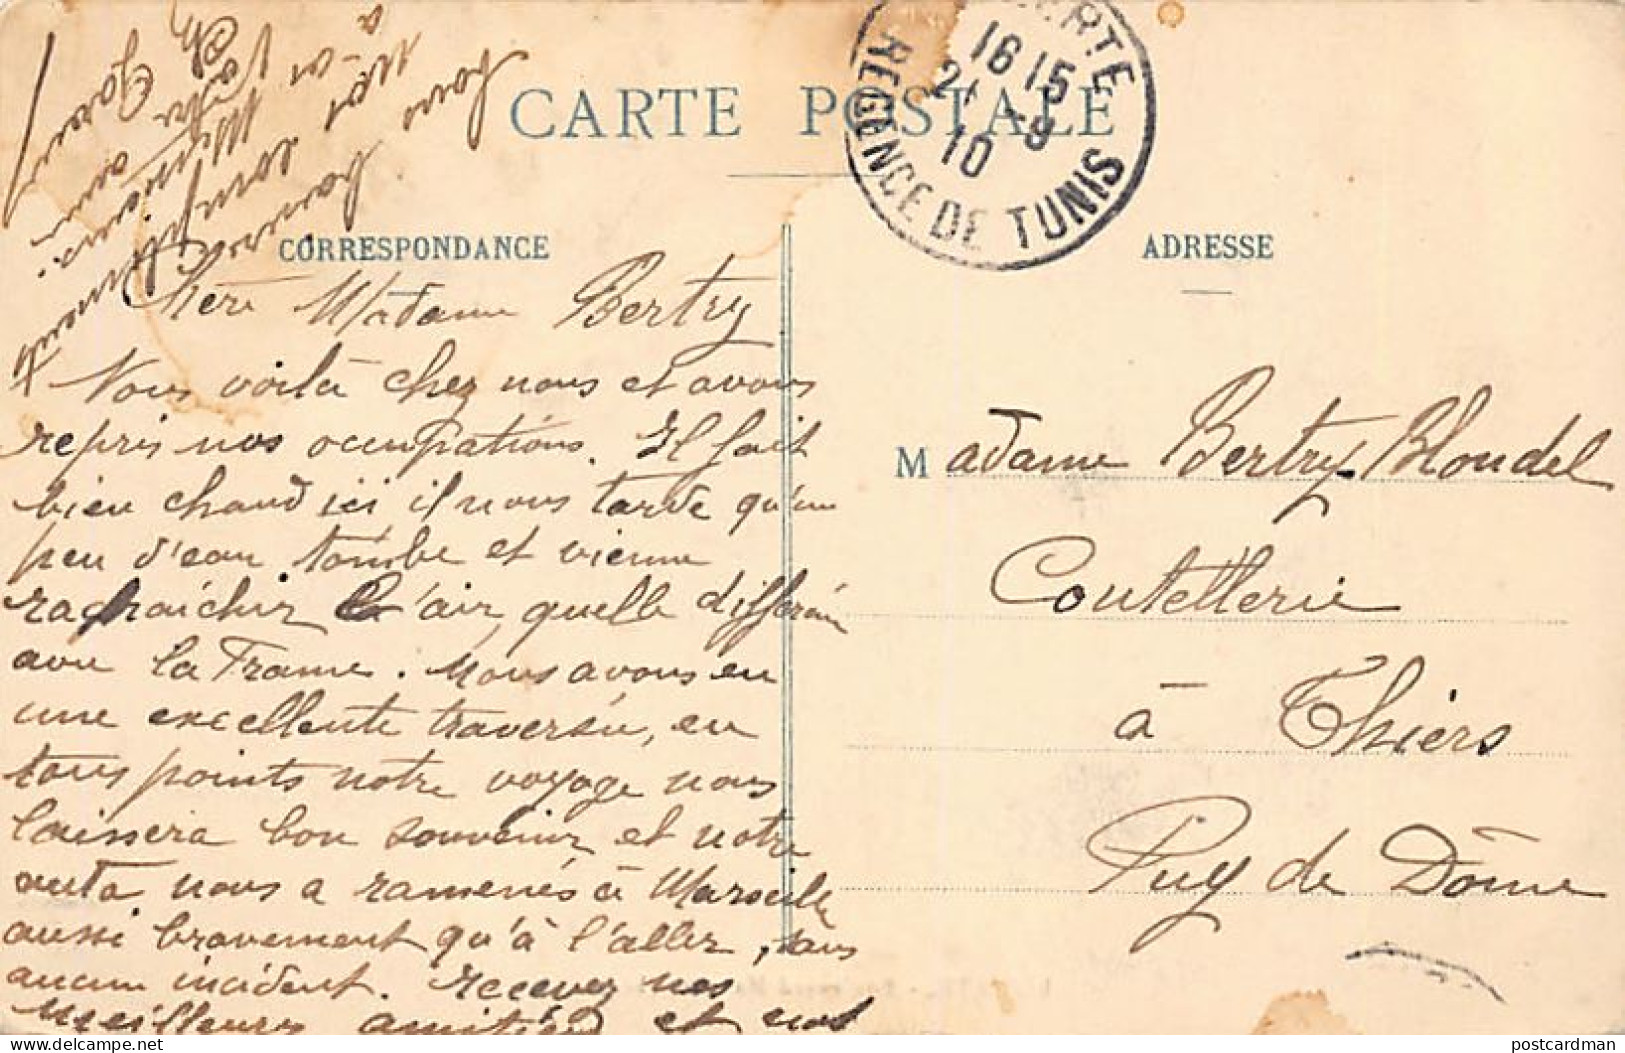 CARTE POSTALE
RTE
16 15
21 -9
10
REGENCE DE TUNIS
CORRESPONDANCE
ADRESSE
Chère Madame Bertry
Nous voilà chez nous et avons
repris nos occupations. Il fait
bien chaud ici il nous tarde qu'un
peu d'eau tombe et vienne
rafraichir l'air, quelle différence
avec la France. Nous avons eu
une excellente traversée, en
tous points notre voyage nous
laissera bon souvenir et notre
auto nous a ramenés à Marseille
aussi bravement qu'à l'aller, sans
aucun incident. Recevez nos
Meilleures amitiés et nos
Madame Bertry-Blondel
Coutellerie
à Thiers
Puy de Dôme
postcardman